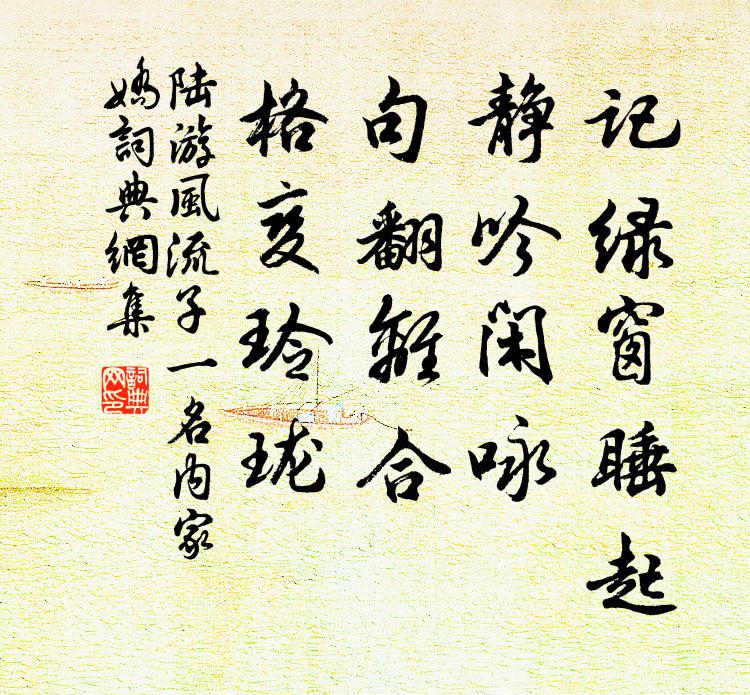 记绿窗睡起
静吟闲咏
句翻離合
格变玲珑
陆游風流子一名内家
嬌詞典網集
詞典网印